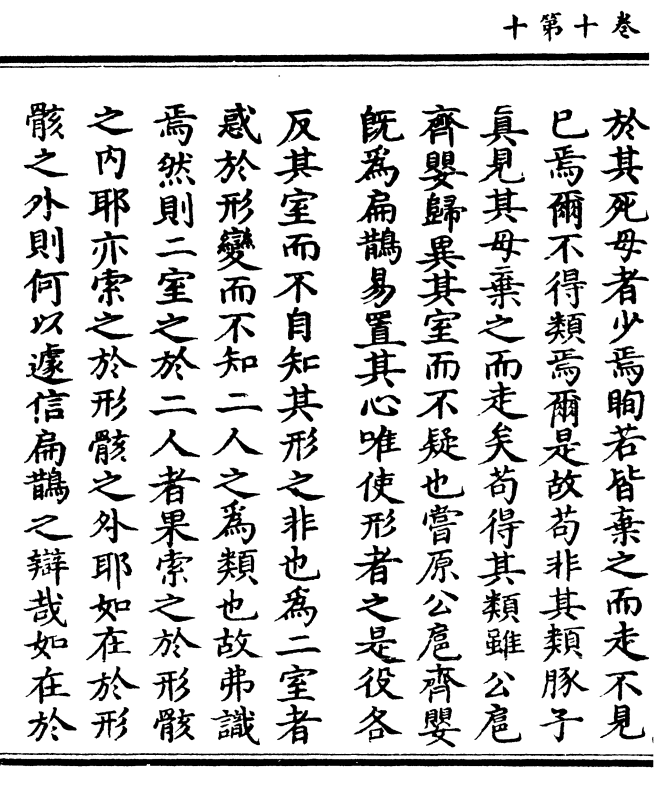 十第十卷
於其死母者少焉眴若皆棄之而走不見
已焉爾不得類焉爾是故苟非其類豚子
眞見其母棄之而走矣苟得其類雖公扈
齊嬰歸異其室而不疑也嘗原公扈齊嬰
旣爲扁鵲易置其心唯使形者之是役各
反其室而不自知其形之非也爲二室者
惑於形變而不知二人之爲類也故弗識
焉然則二室之於二人者果索之於形骸
之內耶亦索之於形骸之外耶如在於形
骸之外則何以遽信扁鵲之辯哉如在於